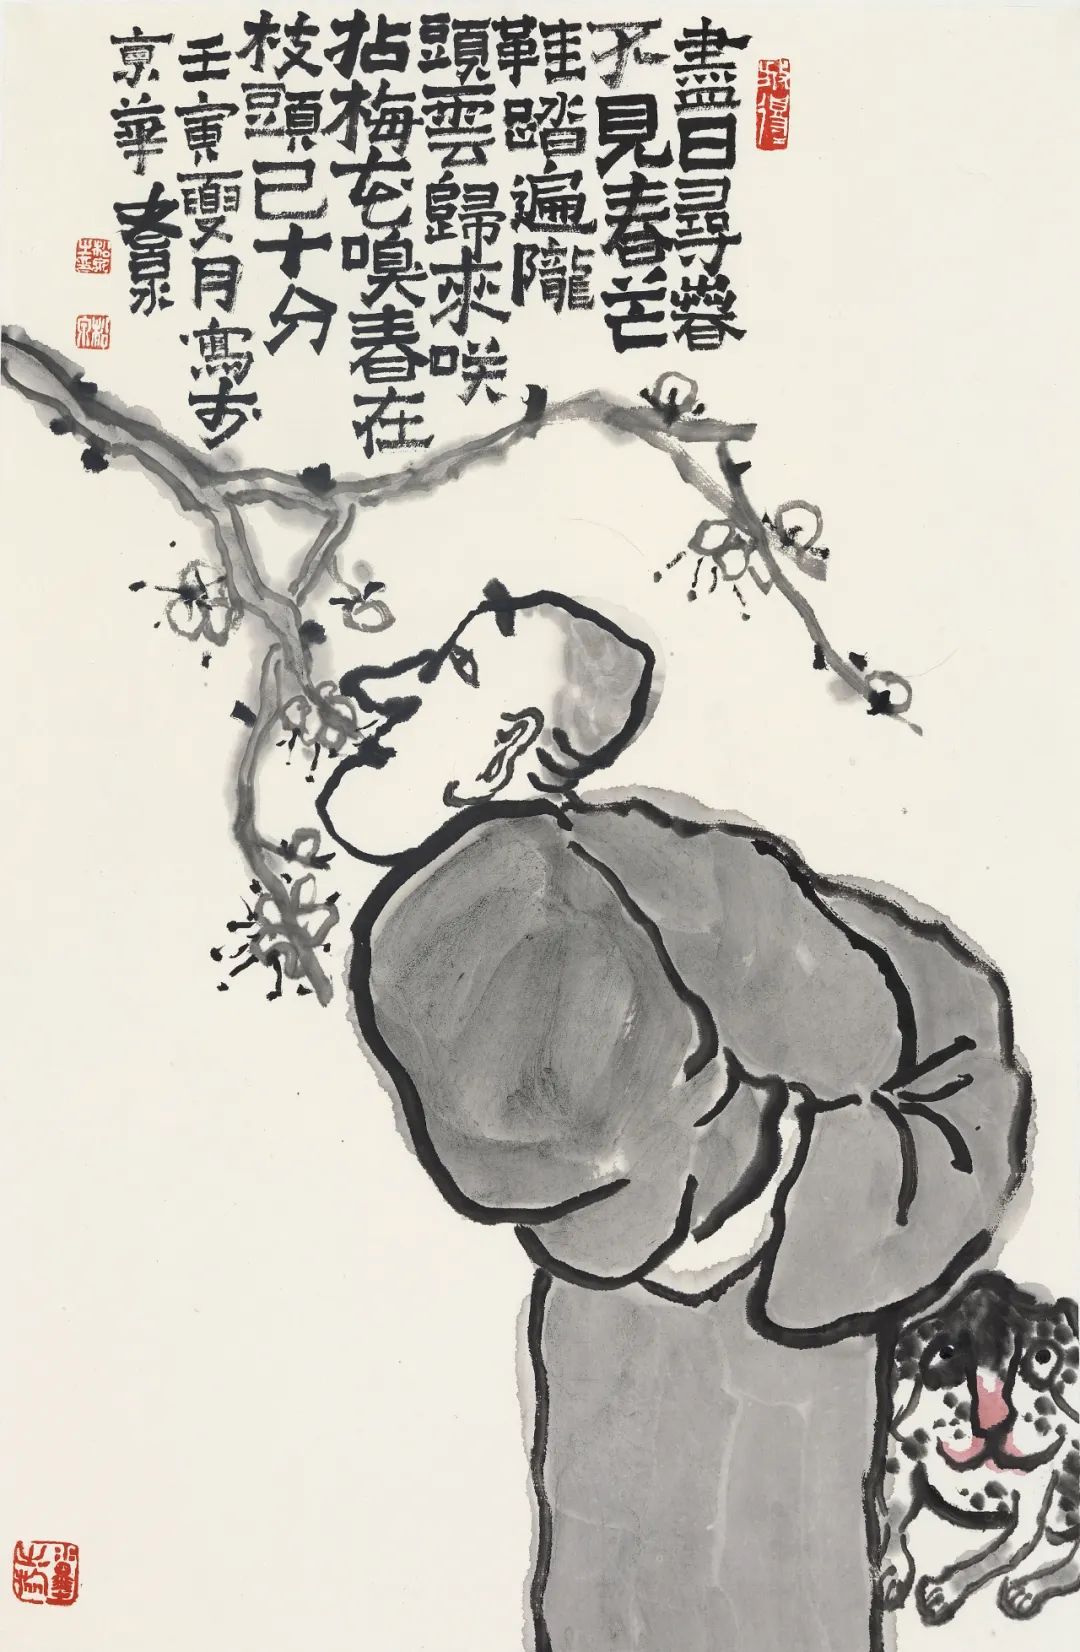 盡日尋萅
不見春芒
鞋踏遍隴
頭雲歸來咲
拈梅花嗅春在
枝頭已十分
壬寅夏月寫於
京華